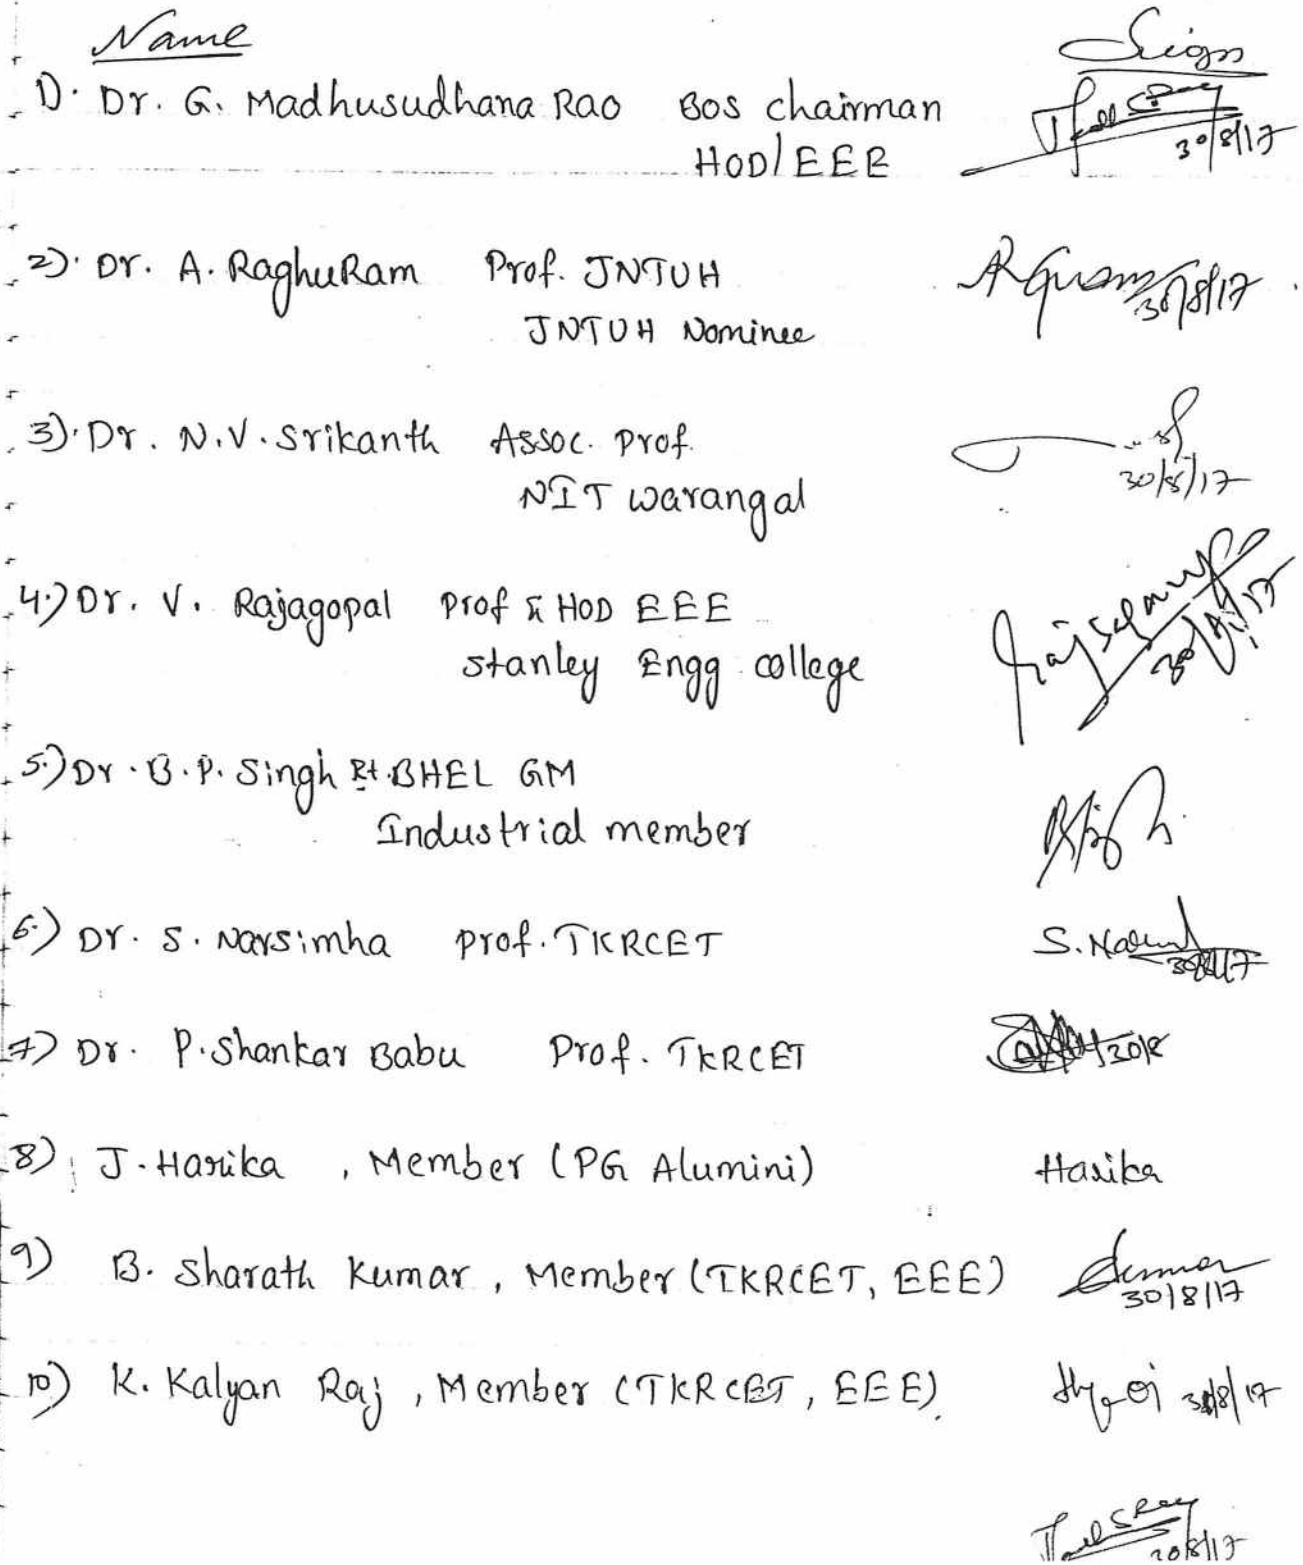 Name Sign
1). Dr. G. Madhusudhana Rao BOS chairman
HOD/EEE 30/8/17
2). Dr. A. RaghuRam Prof. JNTUH
JNTUH Nominee 30/8/17
3). Dr. N.V. Srikanth Assoc. Prof.
NIT Warangal 30/8/17
4.) Dr. V. Rajagopal Prof & HOD EEE
Stanley Engg college
5.) Dr. B.P. Singh Rt. BHEL GM
Industrial member
6.) Dr. S. Narsimha Prof. TKRCET S.
30/8/17
7) Dr. P. Shankar Babu Prof. TKRCET 30/8
8) J. Harika , Member (PG Alumini) Harika
9) B. Sharath Kumar, Member (TKRCET, EEE)
30/8/17
10) K. Kalyan Raj, Member (TKRCET, EEE). 30/8/17
30/8/17